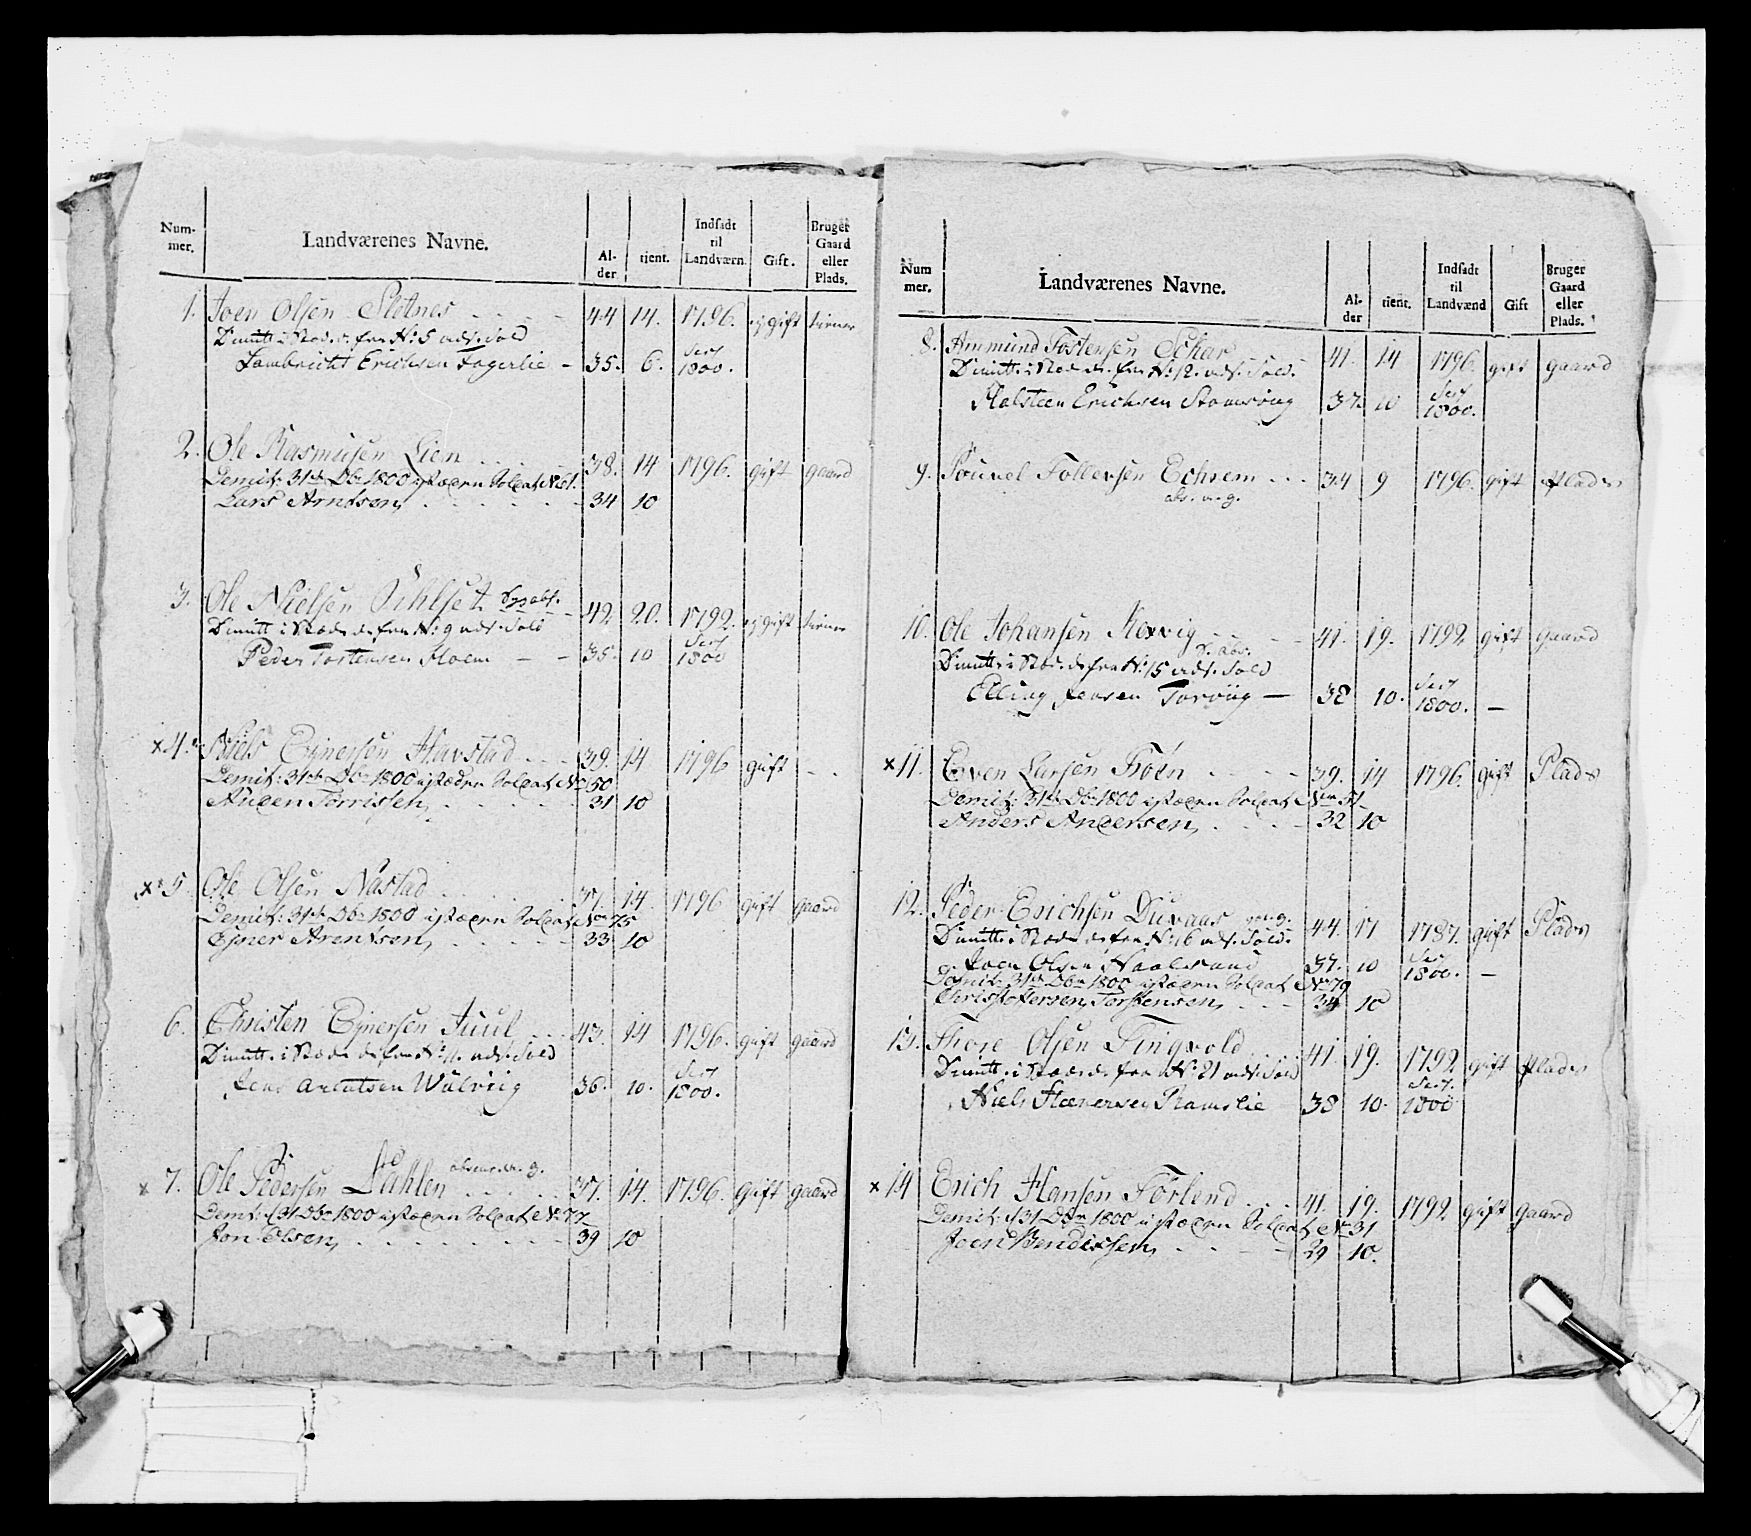 Num-
mer.
Landværenes Navne.
Al-
der
tient.
Indsadt
til
Landværn.
Gift.
Bruger
Gaard
eller
Plads.
1. Joen Olsen Sletnes 44 14. 1796. ej gift tiener
Dimitt: i Stæd. d. fra N: 5 udt. Sold
Lambricht Erichsen Fagerlie - 35. 6. 1800.
2. Ole Rasmusen Lien 38. 14 1796. gift gaard
Demit: 31te Dbr 1800 istæden Soldat No 61.
Lars Arntsen 34 10
3. Ole Nielsen 42 20. 1792. ej gift tiener
Dimitt i Stæd. d. fra N: 9 udt. Sold
Peder Tostensen Moem - - 35. 10 1800
x 4. Niels Ejnersen Havstad 39. 14 1796 gift - -
Demit: 31te Dbr 1800 istæden Soldat No 50
Torrissen 31 10
x 5. Ole Olsen Nastad 37. 14. 1796 gift gaard
Demit: 31te Dbr 1800 istæden Soldat No 75
Ejner Arentsen 33 10
6. Christen Ejnersen Juul 43. 14 1796. gift gaard
Dimitt. i Stæd. d. fra N: 11. udt. Sold
Jens 36. 10. 1800.
x 7. Ole Pedersen 37. 14. 1796. Gift gaard
Demit: d 31 Dbr 1800 istæden Soldat No 77
Jon Olsen 39 10
Num
mer.
Landværenes Navne.
Al-
der
tient.
Indsadt
til
Landværnd
Gift
Bruger
Gaard
eller
Plads.
8. Ammund Tostensen 41. 14 1796. gift gaard
Dimitt. i Stæd. d. fra N: 12. udt. Sold.
Halsteen Erichsen 37. 10 1800.
9. Siuvol Tollevsen Echrem 34 9 1796. gift Plads
10. Ole Johansen 41. 19. 1792 gift gaard
Dimitt. i Stæd. d. fra N: 15 udt. Sold
Elling Jensen Torvug - 38 10. 1800. -
x 11. Even Larsen 39. 14 1796. gift Plads
Demit: 31te Dbr 1800 istæden Soldat No 51
Anders Andersen 32 10
12. Peder Erichsen Duvaas 44. 17 1787. gift Plads
Dimitt: i Stæd. d. fra N: 16 udt. Sold.
Joen Olsen 37. 10 1800. -
Demit: 31te Dbr 1800 istæden Soldat No 79
Christophersen Torstensen 34 10
13. Thore Olsen Tingvold 41. 19. 1792 gift Plads
Dimitt. i Stæd. d. fra N: 21 udt. Sold
Niels Ramslie 38 10. 1800
x 14 Erich Hansen Førlend 41. 19. 1792 gift gaard
Demit: d 31 Dbr 1800 istæden Soldat No 31
Joen Bendixsen 29 10.